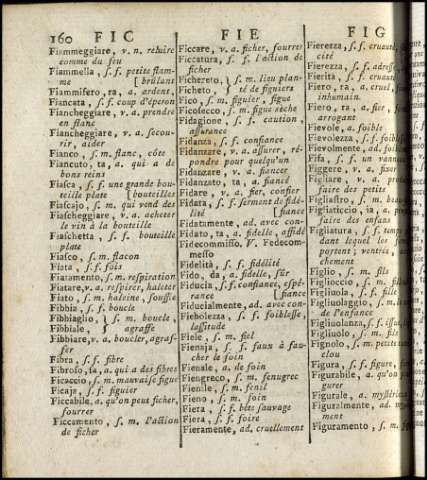 160 FIC
FIE
FIG
Fiammeggiare, v. n. reluire
comme du feu
Fiammella, s. f. petite flam-
me [brûlant
Fiammifero, ra, a. ardent,
Fiancata, s. f. coup d'éperon
Fiancheggiare, v. a. prendre
en flanc
Fiancheggiare, v. a. secou-
rir, aider
Fianco, s. m. flanc, côte
Fiancuto, ta, a. qui a de
bons reins
Fiasca, s. f. une grande bou-
teille plate [bouteilles
Fiascajo, s. m. qui vend des
Fiascheggiare, v. a. acheter
le vin à la bouteille
Fiaschetta, s. f. bouteille
plate
Fiasco, s. m. flacon
Fiata, s. f. fois
Fiatamento, s. m. respiration
Fiatare, v. a. respirer, haleter
Fiato, s. m. haleine, souffle
Fibbia, s. f. boucle
Fibbiaglio, } s. m. boucle,
Fibbiale, } agraffe
Fibbiare, v. a. boucler, agraf-
fer
Fibra, s. f. fibre
Fibroso, sa, a. qui a des fibres
Ficaccio, s. m. mauvaise figue
Ficaja, s. f. figuier
Ficcabile, a. qu'on peut ficher,
fourrer
Ficcamento, s. m. l'action
de ficher
Ficcare, v. a. ficher, fourrer
Ficcatura, s. f. l'action de
ficher
Fichereto, } s. m. lieu plan-
Ficheto, } té de figuiers
Fico, s. m. figuier, figue
Ficosecco, s. m. figue sèche
Fidagione, s. f. caution,
assurance
Fidanza, s. f. confiance
Fidanzare, v. a. assurer, ré-
pondre pour quelqu'un
Fidanzare, v. a. fiancer
Fidanzato, ta, a. fiancé
Fidare, v. a. fier, confier
Fidata, s. f. serment de fidé-
lité [fiance
Fidatamente, ad. avec con-
Fidato, ta, a. fidelle, affidé
Fidecommisso, V. Fedecom-
messo
Fidelità, s. f. fidélité
Fido, da, a. fidelle, sûr
Fiducia, s. f. confiance, espé-
rance [fiance
Fiducialmente, ad. avec con-
Fiebolezza, s. f. foiblesse,
lassitude
Fiele, s. m. fiel
Fienaja, s. f. faux à fau-
cher le foin
Fienale, a. de foin
Fiengreco, s. m. fenugrec
Fienile, s. m. fenil
Fieno, s. m. foin
Fiera, s. f. bête sauvage
Fiera, s. f. foire
Fieramente, ad. cruellement
Fierezza, s. f. cruauté,
cité
Fierezza, s. f. adresse,
Fierità, s. f. cruauté,
Fiero, ra, a. cruel,
inhumain.
Fiero, ra, a. fier,
arrogant
Fievole, a. foible
Fievolezza, s. f. foiblesse
Fievolmente, ad.
Fifa, s. f. un vanneau
Figgere, v. a. fixer
Figliare, v. a. produire
faire des petits
Figliastro, s. m. beau
Figliaticcio, a. propre
faire des enfans
Figliatura, s. f. temps
dant lequel les
portent; ventrée,
chement
Figlio, s. m. fils
Figlioccio, s. m.
Figliuola, s. f. fille
Figliuolaggio, s. m.
de l'enfance
Figliuolanza, s. f. issue
Figliuolo, s. m. fils
Fignolo, s. m. petit
clou
Figura, s. f. figure
Figurabile, a. qu'on
gurer
Figurale, a. mystérieux
Figuralmente, ad.
ment
Figuramento, s. m.